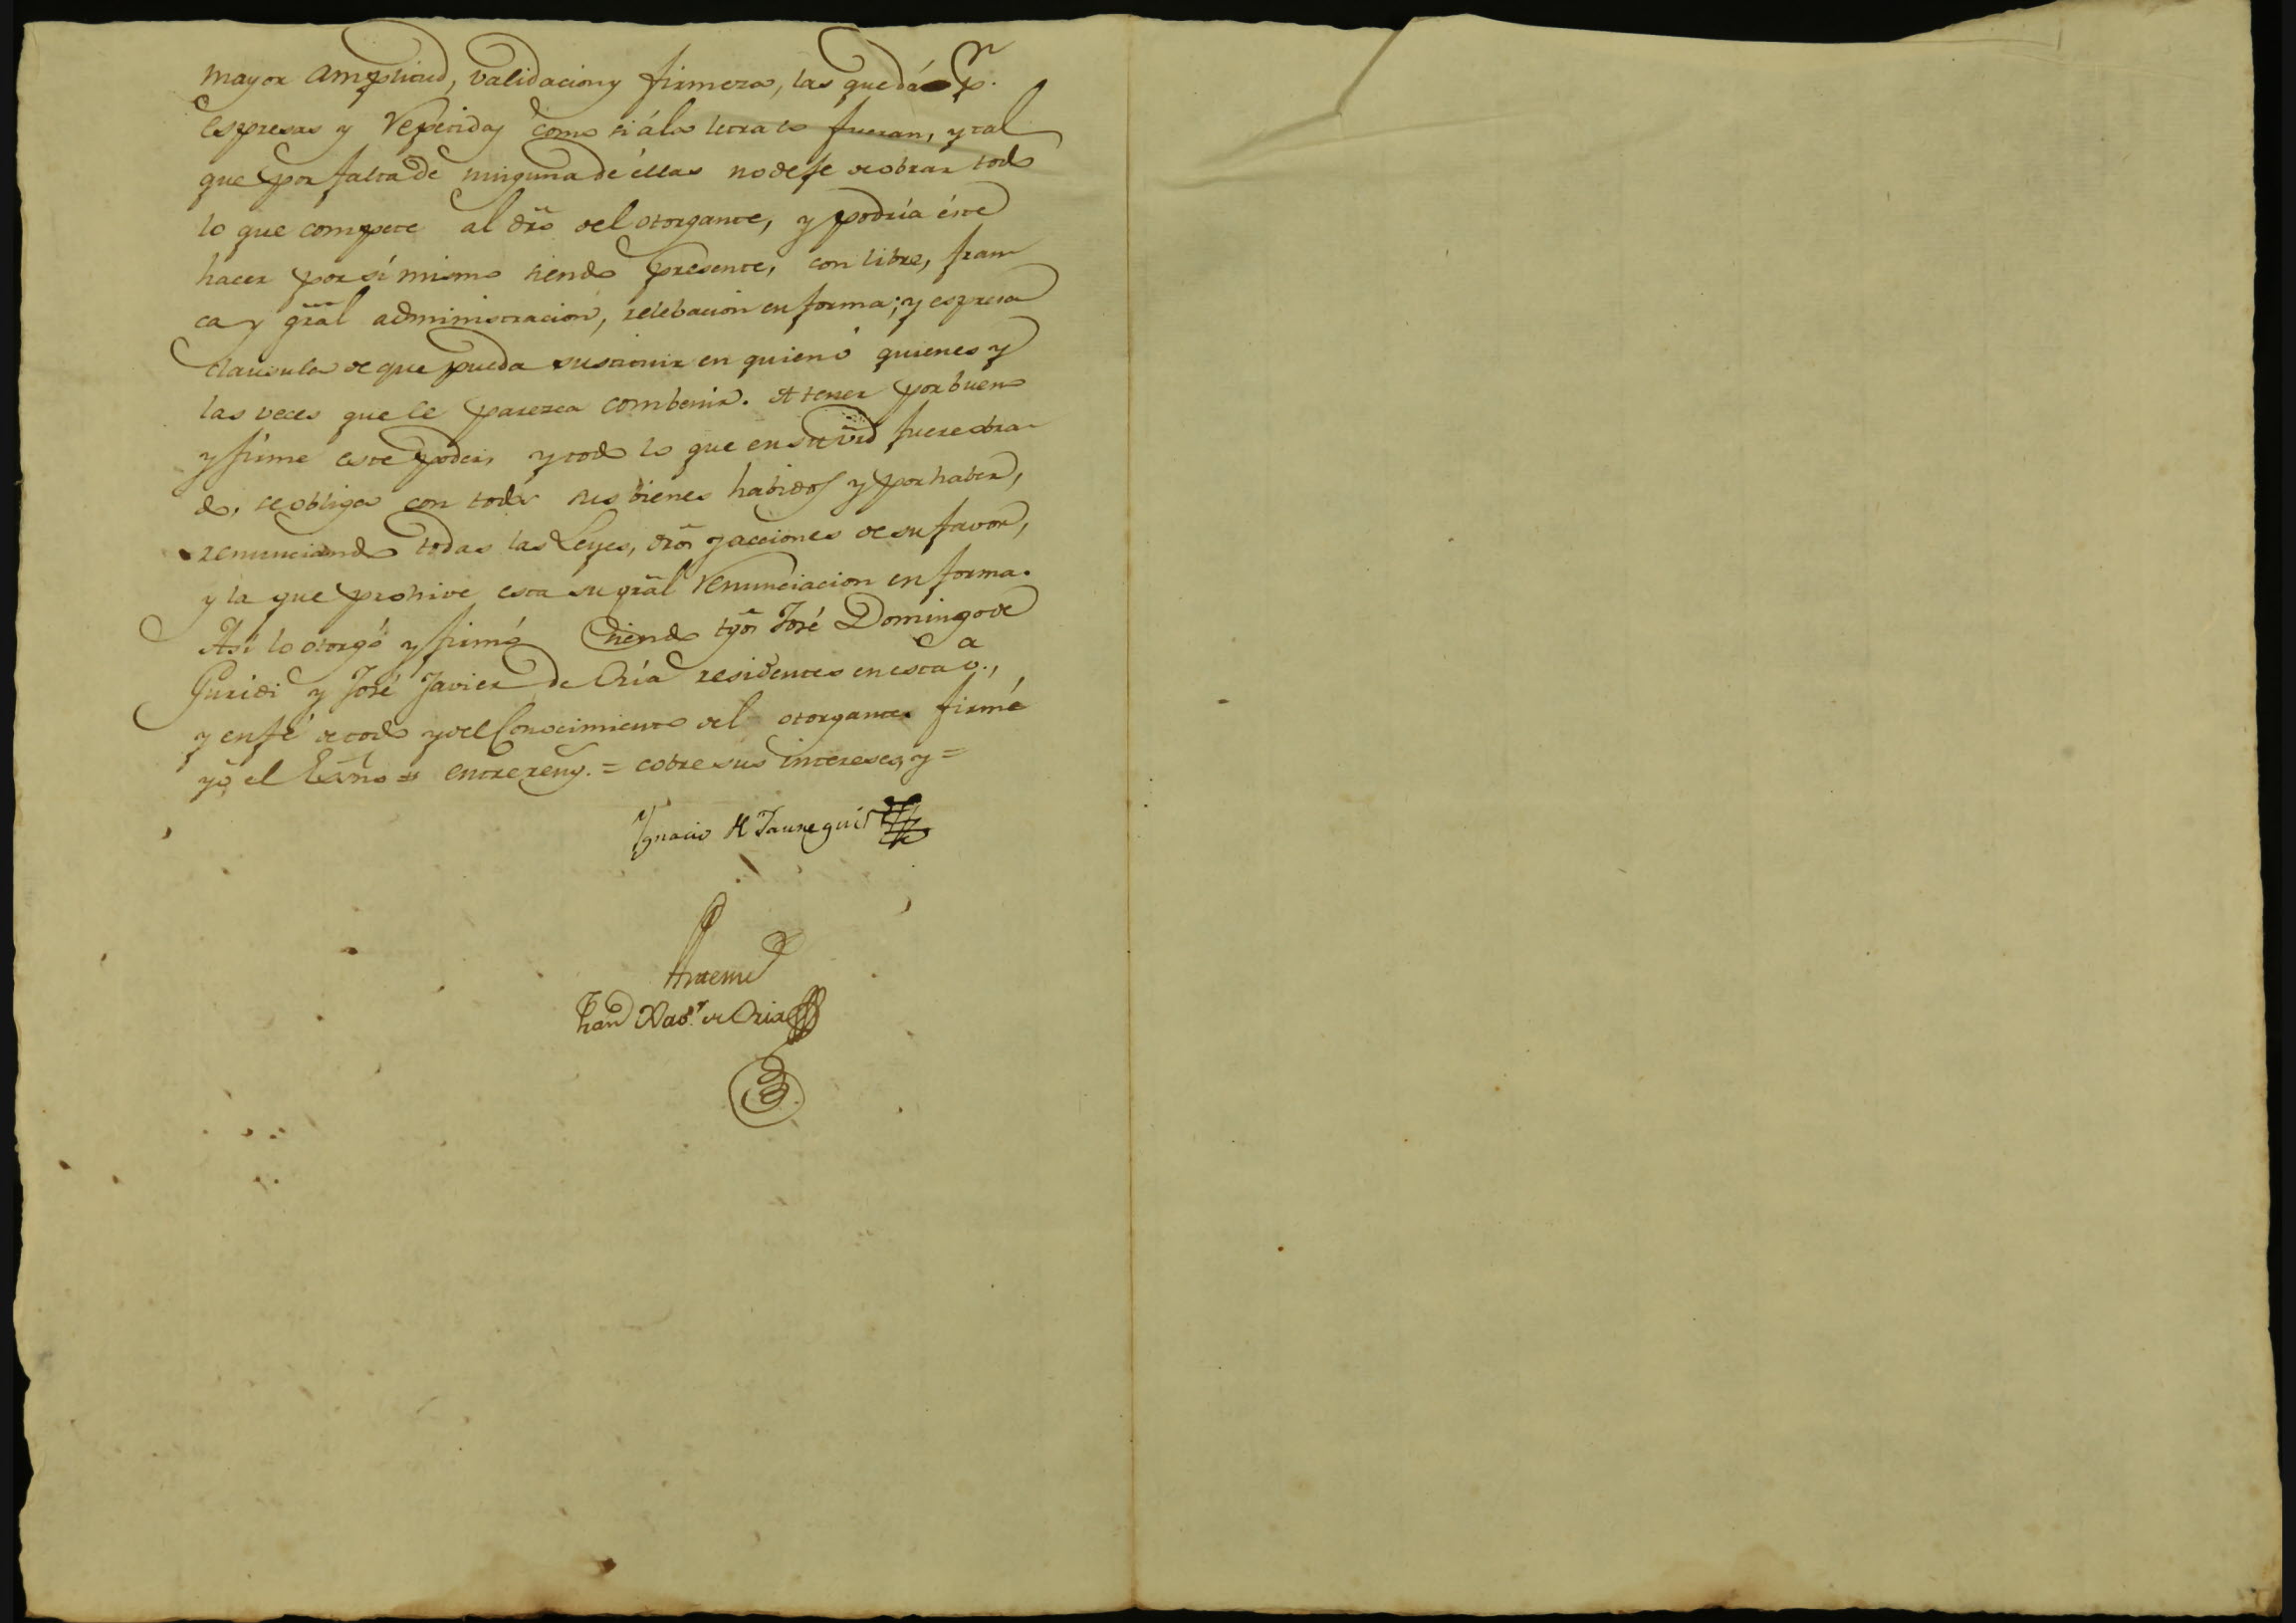 mayor amplitud, validacion y firmeza, las que dá pr.
espresas y repetidas como si á la letra lo fueran, y tal
que por falta de ninguna de éllas no deje de obrar todo
lo que compete al dro̅ del otorgante, y podria éste
hacer por sí mismo siendo presente, con libre, fran
ca y gra̅l administracion, relebacion en forma; y espresa
clausula de que pueda sustituir en quien ó quienes y
las veces que le parezca combenir. A tener por bueno
y firme este poder, y todo lo que en su vrd̅ fuere obra
do, se obliga con todos sus bienes habidos y por haber,
renunciando todas las Leyes, dro̅s y acciones de su favor,
y la que prohive esta su gra̅l renunciacion en forma.
Así lo otorgó y firmó siendo tgo̅s José Domingo de
Guridi y José Javier de Oria residentes en esta va.,
y en fé de todo y del conocimiento del otorgante firmé
yo el Esno̅ = entrereng. = cobre sus intereses, y =
Ygnacio M Jauregui
Antemi
Juan Nabr. de Oria